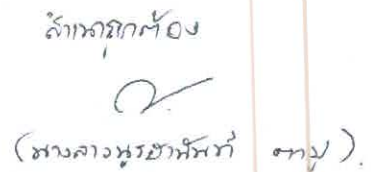 สำเนาถูกต้อง
(นางสาวนูรฮานันท์